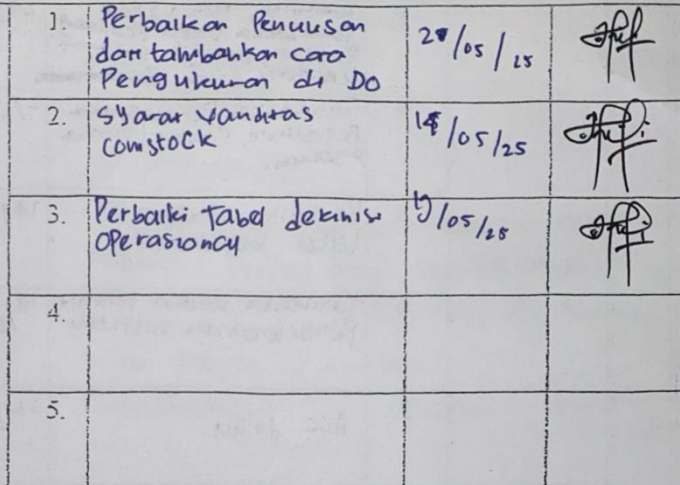 1. Perbaikan Penulisan
dan tambahkan cara
Pengukuran di DO
/05/25
2. Syarat Validitas
comstock
/05/25
3. Perbaiki Tabel definisi
operasional
/05/25
4.
5.